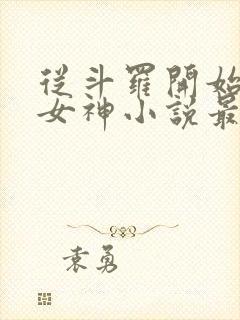 從斗羅開始
女神小說最
袁勇